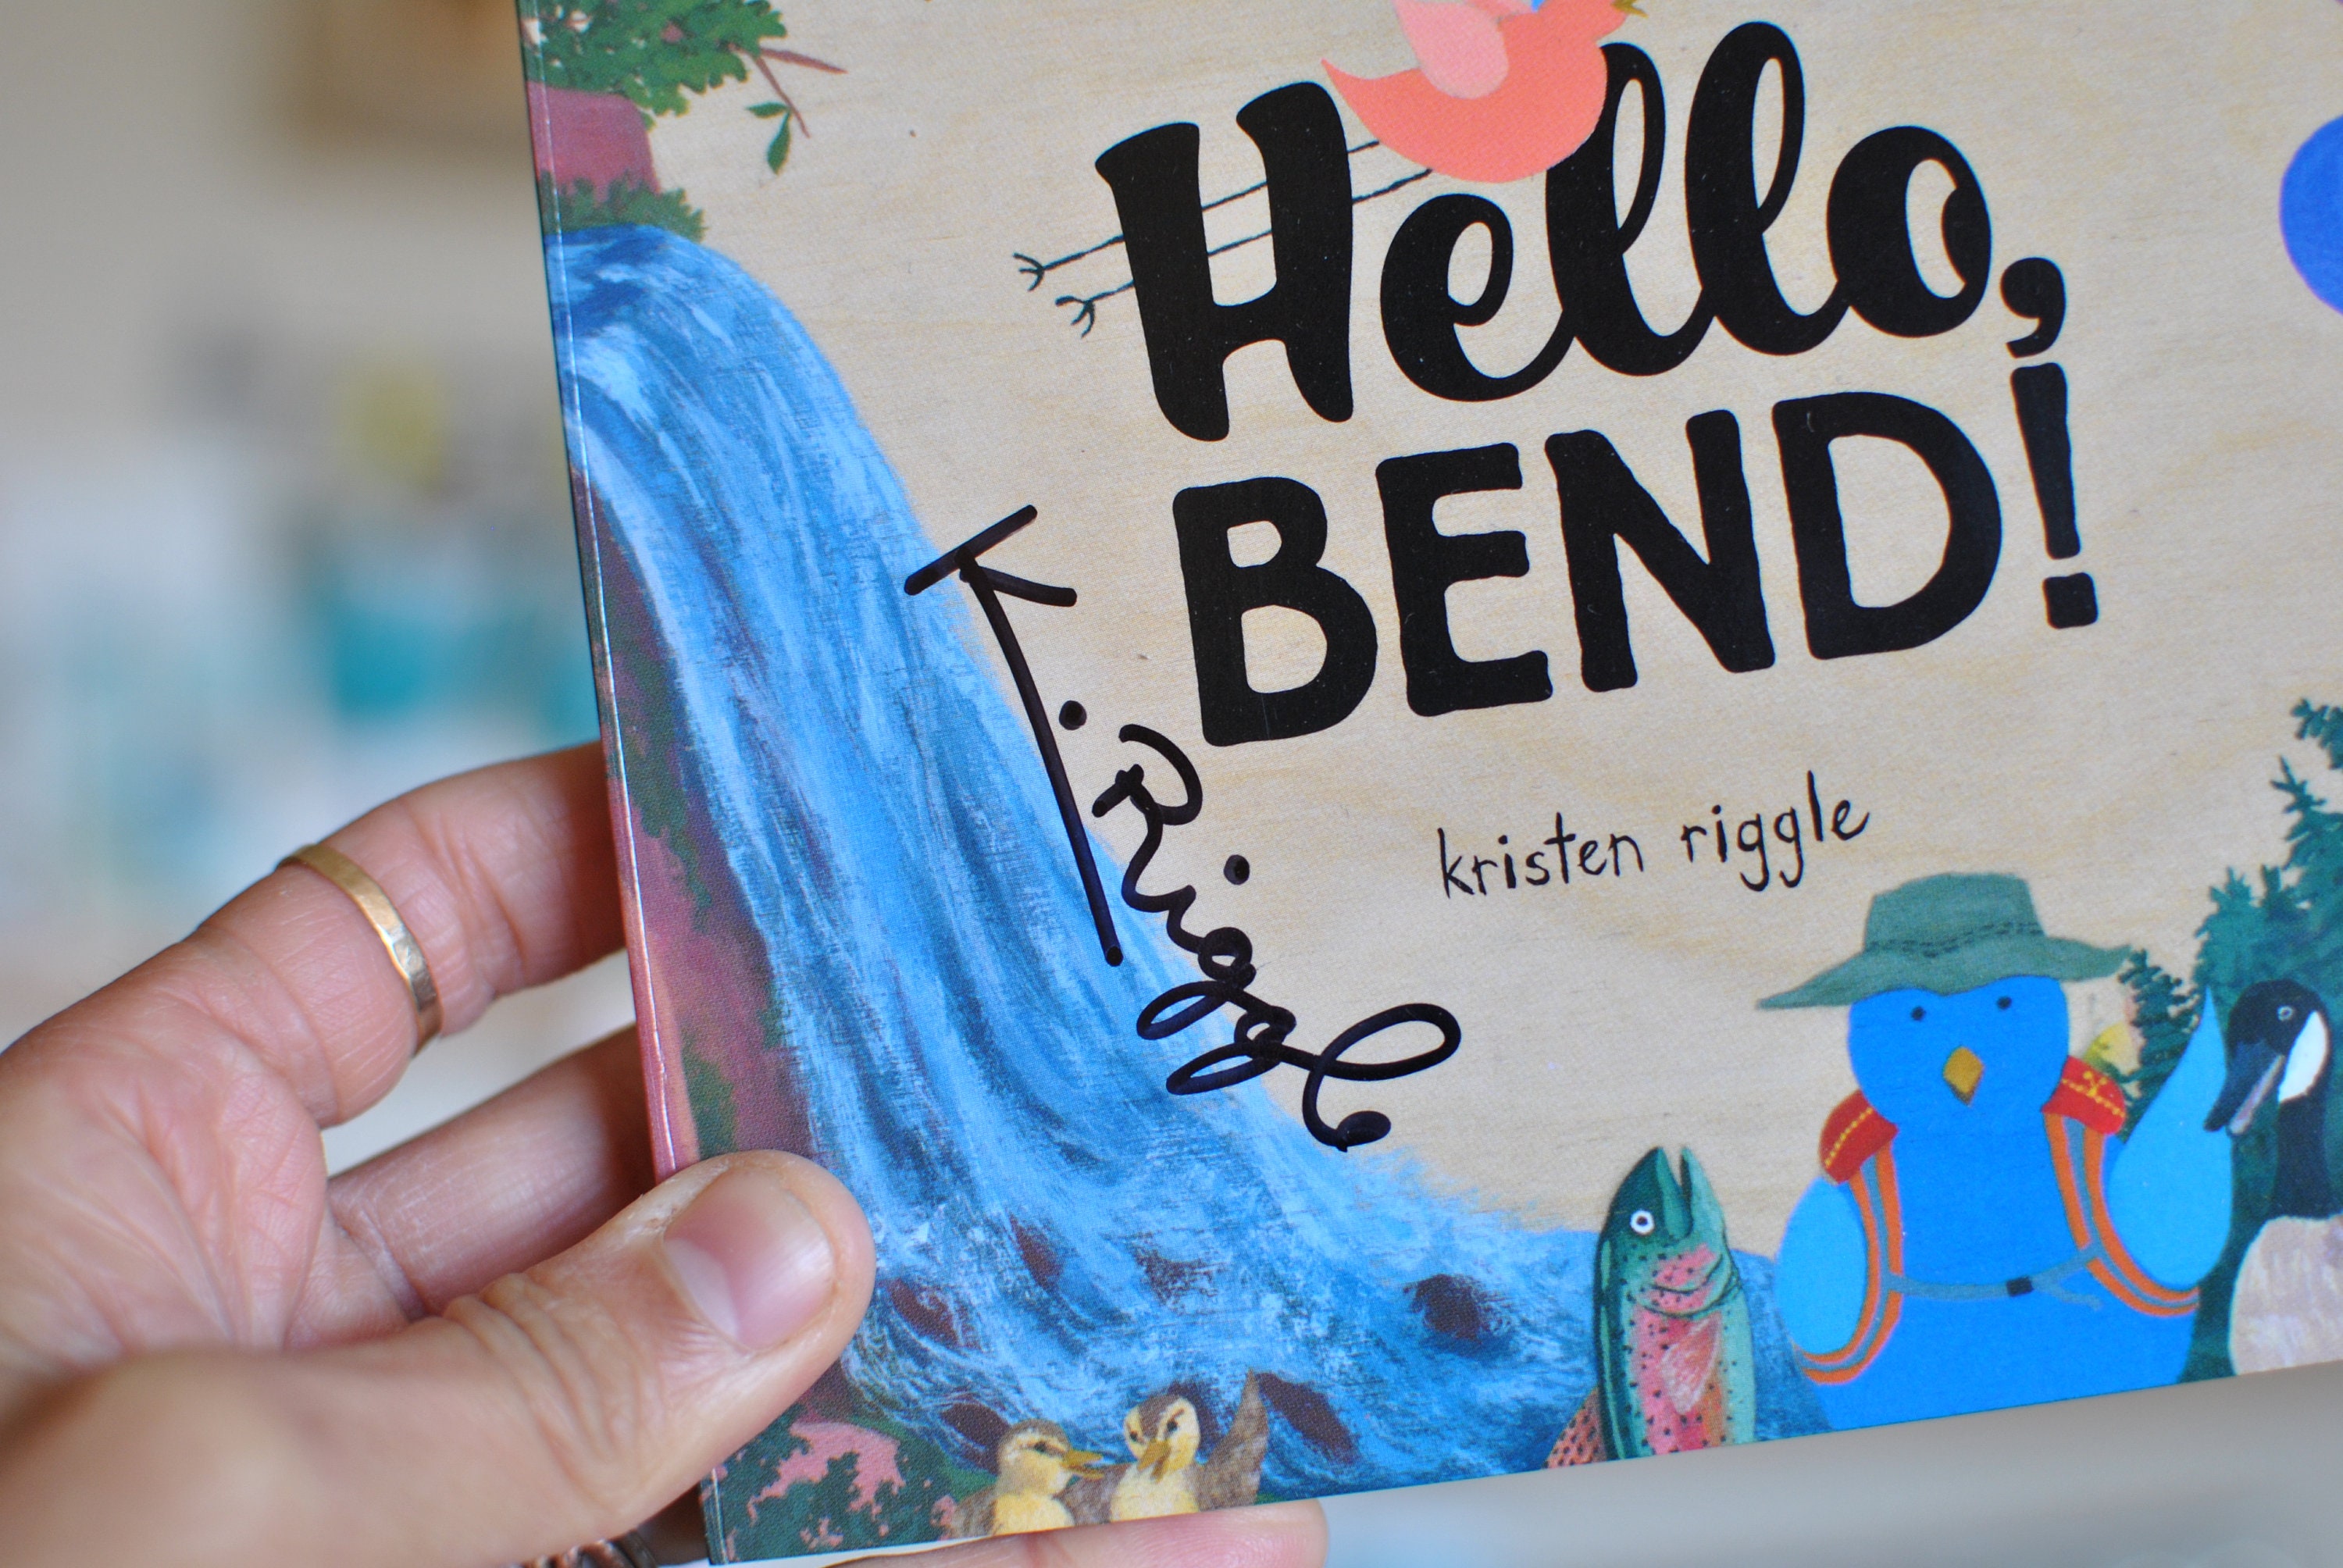 Hello,
BEND!
kristen riggle
K. Riggle